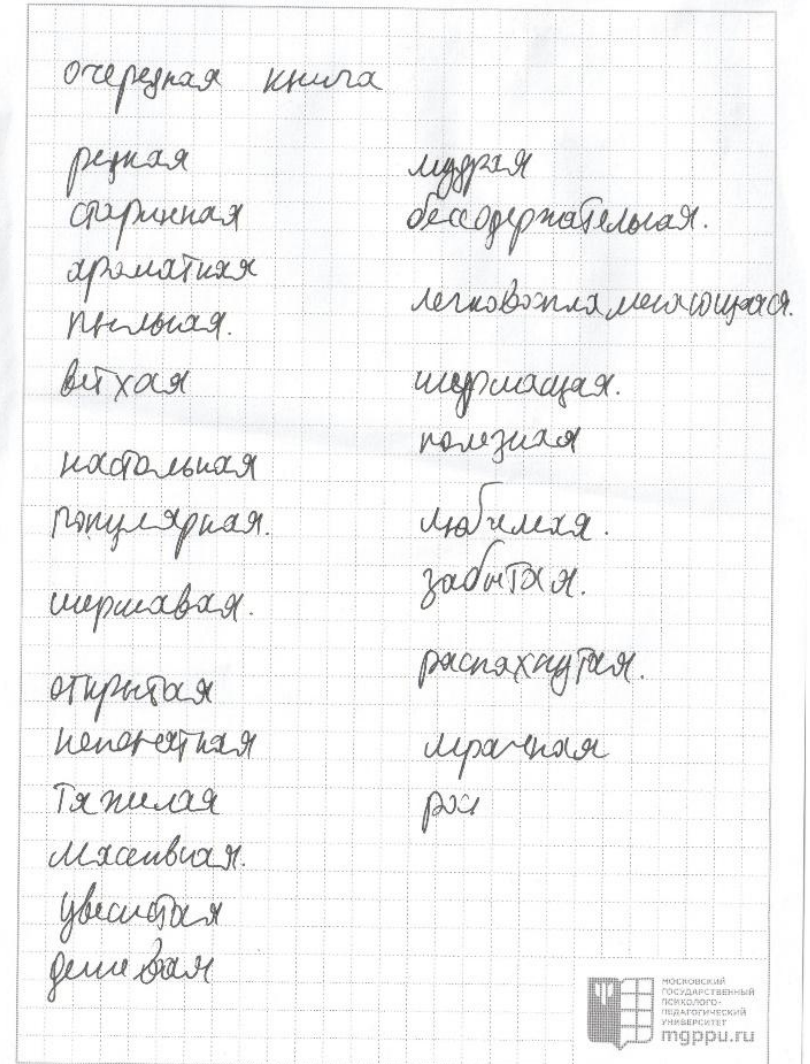 очередная книга
редкая
старинная
ароматная
пыльная.
ветхая
настольная
популярная.
шершавая.
открытая
непонятная
тяжилая
массивная.
увесистая
дешевая
мудрая
бессодержательная.
легковоспламеняющаяся.
шуршащая.
полезная
любимая.
забытая.
распахнутая.
мрачная
рас
МОСКОВСКИЙ
ГОСУДАРСТВЕННЫЙ
ПСИХОЛОГО-
ПЕДАГОГИЧЕСКИЙ
УНИВЕРСИТЕТ
mgppu.ru